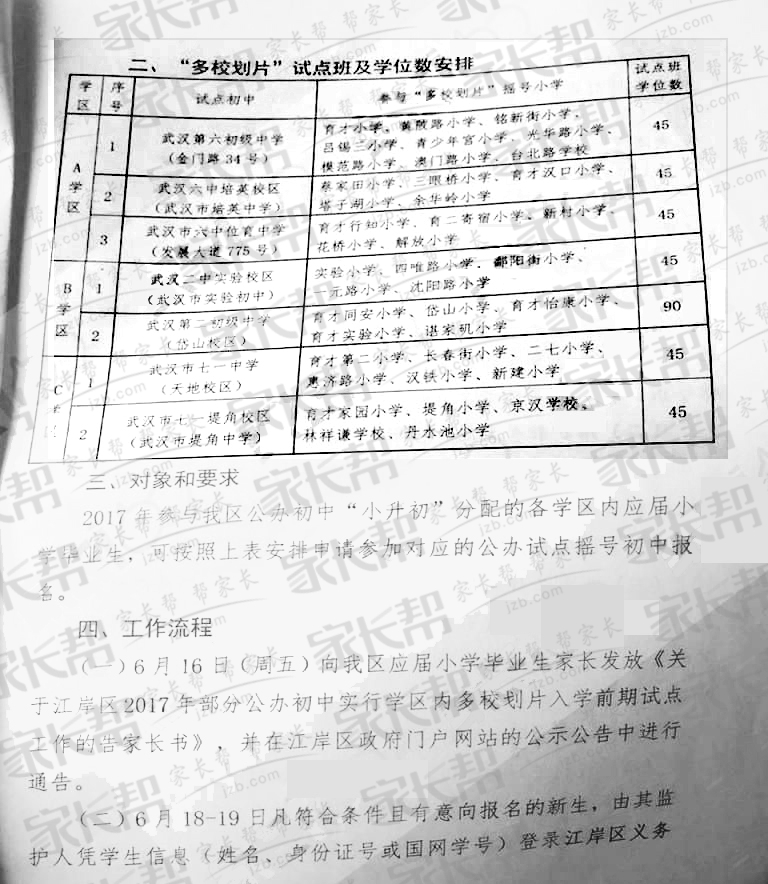 二、“多校划片”试点班及学位数安排
学区 序号 试点初中 参与“多校划片”摇号小学 试点班学位数
A学区
1 武汉第六初级中学 育才小学、黄陂路小学、铭新街小学、 45
(金门路34号) 吕锡三小学、青少年宫小学、光华路小学、
模范路小学、澳门路小学、台北路学校
2 武汉六中培英校区 蔡家田小学、三眼桥小学、育才汉口小学、 45
(武汉市培英中学) 塔子湖小学、余华岭小学
3 武汉市六中位育中学 育才行知小学、育二寄宿小学、新村小学、 45
(发展大道775号) 花桥小学、解放小学
B学区
1 武汉二中实验校区 实验小学、四唯路小学、鄱阳街小学、 45
(武汉市实验初中) 一元路小学、沈阳路小学
2 武汉第二初级中学 育才同安小学、岱山小学、育才怡康小学、 90
(岱山校区) 育才实验小学、谌家矶小学
C
1 武汉市七一中学 育才第二小学、长春街小学、二七小学、 45
(天地校区) 惠济路小学、汉铁小学、新建小学
2 武汉市七一堤角校区 育才家园小学、堤角小学、京汉学校、 45
(武汉市堤角中学) 林祥谦学校、丹水池小学
三、对象和要求
2017年参与我区公办初中“小升初”分配的各学区内应届小
学毕业生，可按照上表安排申请参加对应的公办试点摇号初中报
名。
四、工作流程
(一)6月16日(周五)向我区应届小学毕业生家长发放《关
于江岸区2017年部分公办初中实行学区内多校划片入学前期试点
工作的告家长书》，并在江岸区政府门户网站的公示公告中进行
通告。
(二)6月18-19日凡符合条件且有意向报名的新生，由其监
护人凭学生信息(姓名、身份证号或国网学号)登录江岸区义务
家长帮 帮家长
jzb.com